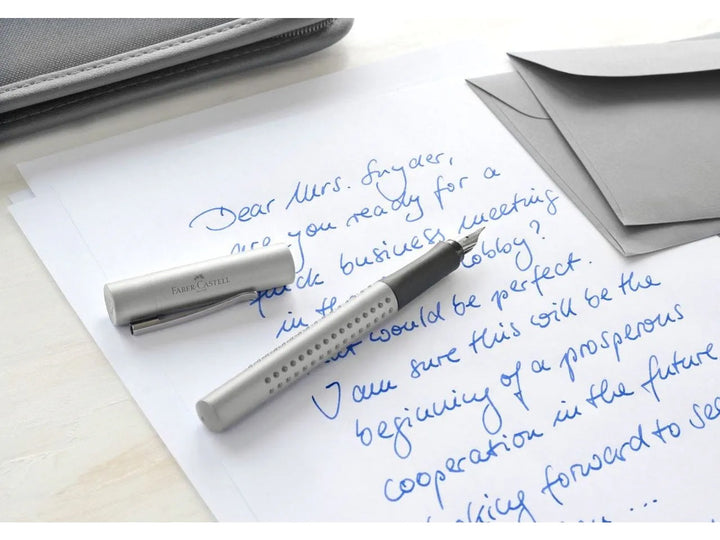 Dear Mrs. Snyder,
are you ready for a
business meeting
in the lobby?
would be perfect.
I am sure this will be the
beginning of a prosperous
cooperation in the future
forward to
...
FABER-CASTELL